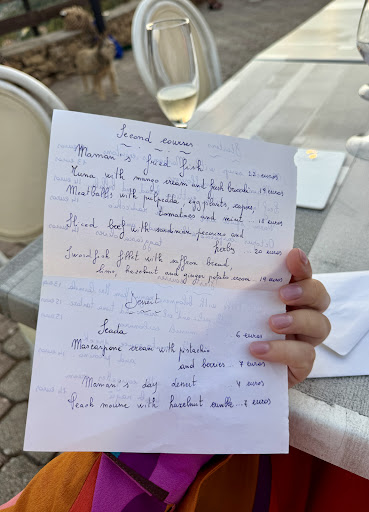 Second courses
Maman's fried fish 22 euros
Tuna with mango cream and fresh 19 euros
Meatballs with eggplants, capers
tomatoes and mint... 18 euros
Sliced beef with sardinian pecorino and
herbs ... 20 euros
Swordfish fillet with saffron bread,
lime, hazelnut and ginger potato cream.. 19 euros
Desert
Seada 6 euros
Mascarpone cream with pistachio
and berries ... 7 euros
Maman's day desert 4 euros
Peach mousse with hazelnut crumble ... 7 euros